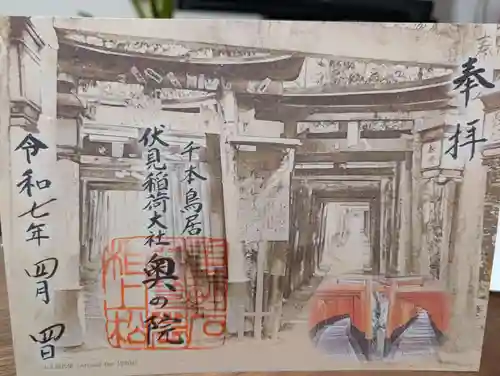 奉拝
千本鳥居
伏見稲荷大社
奥の院
令和七年四月四日